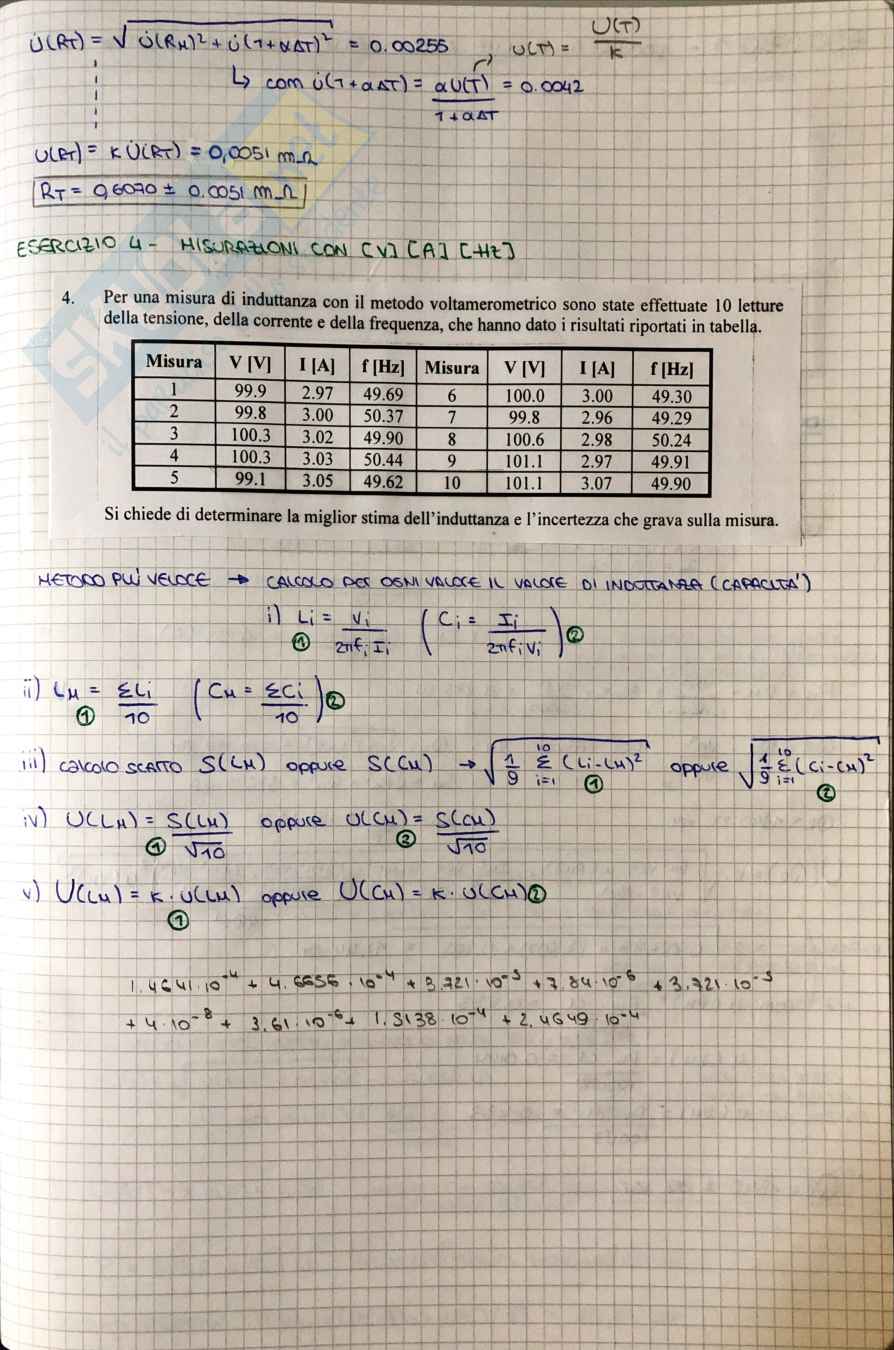 u̇(RT) = √u̇(RM)² + u̇(1+αΔT)² = 0.00255   u(T) = U(T)/K
↳ com u̇(1+αΔT) = αU(T)/1+αΔT = 0.0042
U(RT) = K u̇(RT) = 0,0051 mΩ
RT = 0,6070 ± 0.0051 mΩ
ESERCIZIO 4 - MISURAZIONI CON [V] [A] [Hz]
4. Per una misura di induttanza con il metodo voltamerometrico sono state effettuate 10 letture
della tensione, della corrente e della frequenza, che hanno dato i risultati riportati in tabella.
Misura V [V] I [A] f [Hz] Misura V [V] I [A] f [Hz]
1 99.9 2.97 49.69 6 100.0 3.00 49.30
2 99.8 3.00 50.37 7 99.8 2.96 49.29
3 100.3 3.02 49.90 8 100.6 2.98 50.24
4 100.3 3.03 50.44 9 101.1 2.97 49.91
5 99.1 3.05 49.62 10 101.1 3.07 49.90
Si chiede di determinare la miglior stima dell'induttanza e l'incertezza che grava sulla misura.
METODO PIU' VELOCE → CALCOLO PER OGNI VALORE IL VALORE DI INDUTTANZA (CAPACITA')
i) Li = Vi/2πfi Ii ① (Ci = Ii/2πfiVi) ②
ii) LM = ΣLi/10 ① (CM = ΣCi/10) ②
iii) CALCOLO SCARTO S(LM) oppure S(CM) → √1/9 Σ i=1 10 (Li-LM)² ① oppure √1/9 Σ i=1 10 (Ci-CM)² ②
iv) U(LM) = S(LM)/√10 ① oppure U(CM) = S(CM)/√10 ②
v) U(LM) = K · U(LM) ① oppure U(CM) = K · U(CM) ②
1.4641·10⁻⁴ + 4.6656·10⁻⁴ + 3.721·10⁻⁵ + 7.84·10⁻⁶ + 3.721·10⁻⁵
+ 4·10⁻⁸ + 3.61·10⁻⁶ + 1.3138·10⁻⁴ + 2.4649·10⁻⁴